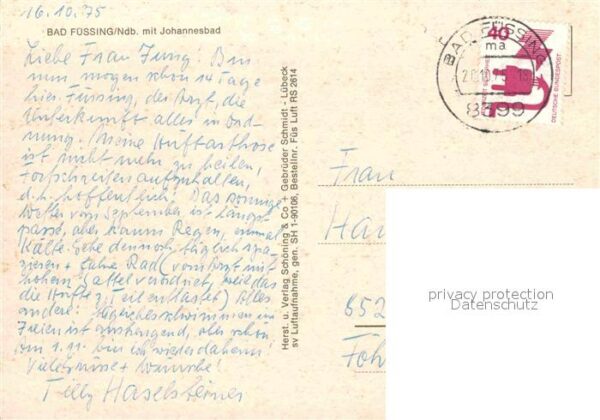 16.10.75
BAD FÜSSING/Ndb. mit Johannesbad
Liebe Frau Jung. Bin
nun morgen schon 14 Tage
hier. Füssing, der Arzt, die
Unterkunft alles in Ord-
nung. Meine Hüftarthrose
ist nicht mehr zu heilen,
Fortschreiten aufzuhalten,
d.h. hoffentlich. Das sonnige
Wetter vom September ist längst
passé, aber kaum Regen, einmal
Kälte. Gehe dennoch täglich spa-
zieren + fahre Rad (vom Arzt mit
hohem Sattel verordnet, weil das
die Hüfte z. Teil entlastet) Alles
andere: tägliches schwimmen im
Freien ist anstrengend, aber schön.
Am 1.11. bin ich wieder daheim!
Viele Grüsse + Wünsche!
Tilly Haselsteiner
Herst. u. Verlag Schöning & Co + Gebrüder Schmidt - Lübeck
sv Luftaufnahme, gen. SH 1-90106, Bestellnr. Füs Luft RS 2614
BAD FÜSSING
8399
40
ma
DEUTSCHE BUNDESPOST
Frau
852
privacy protection
Datenschutz